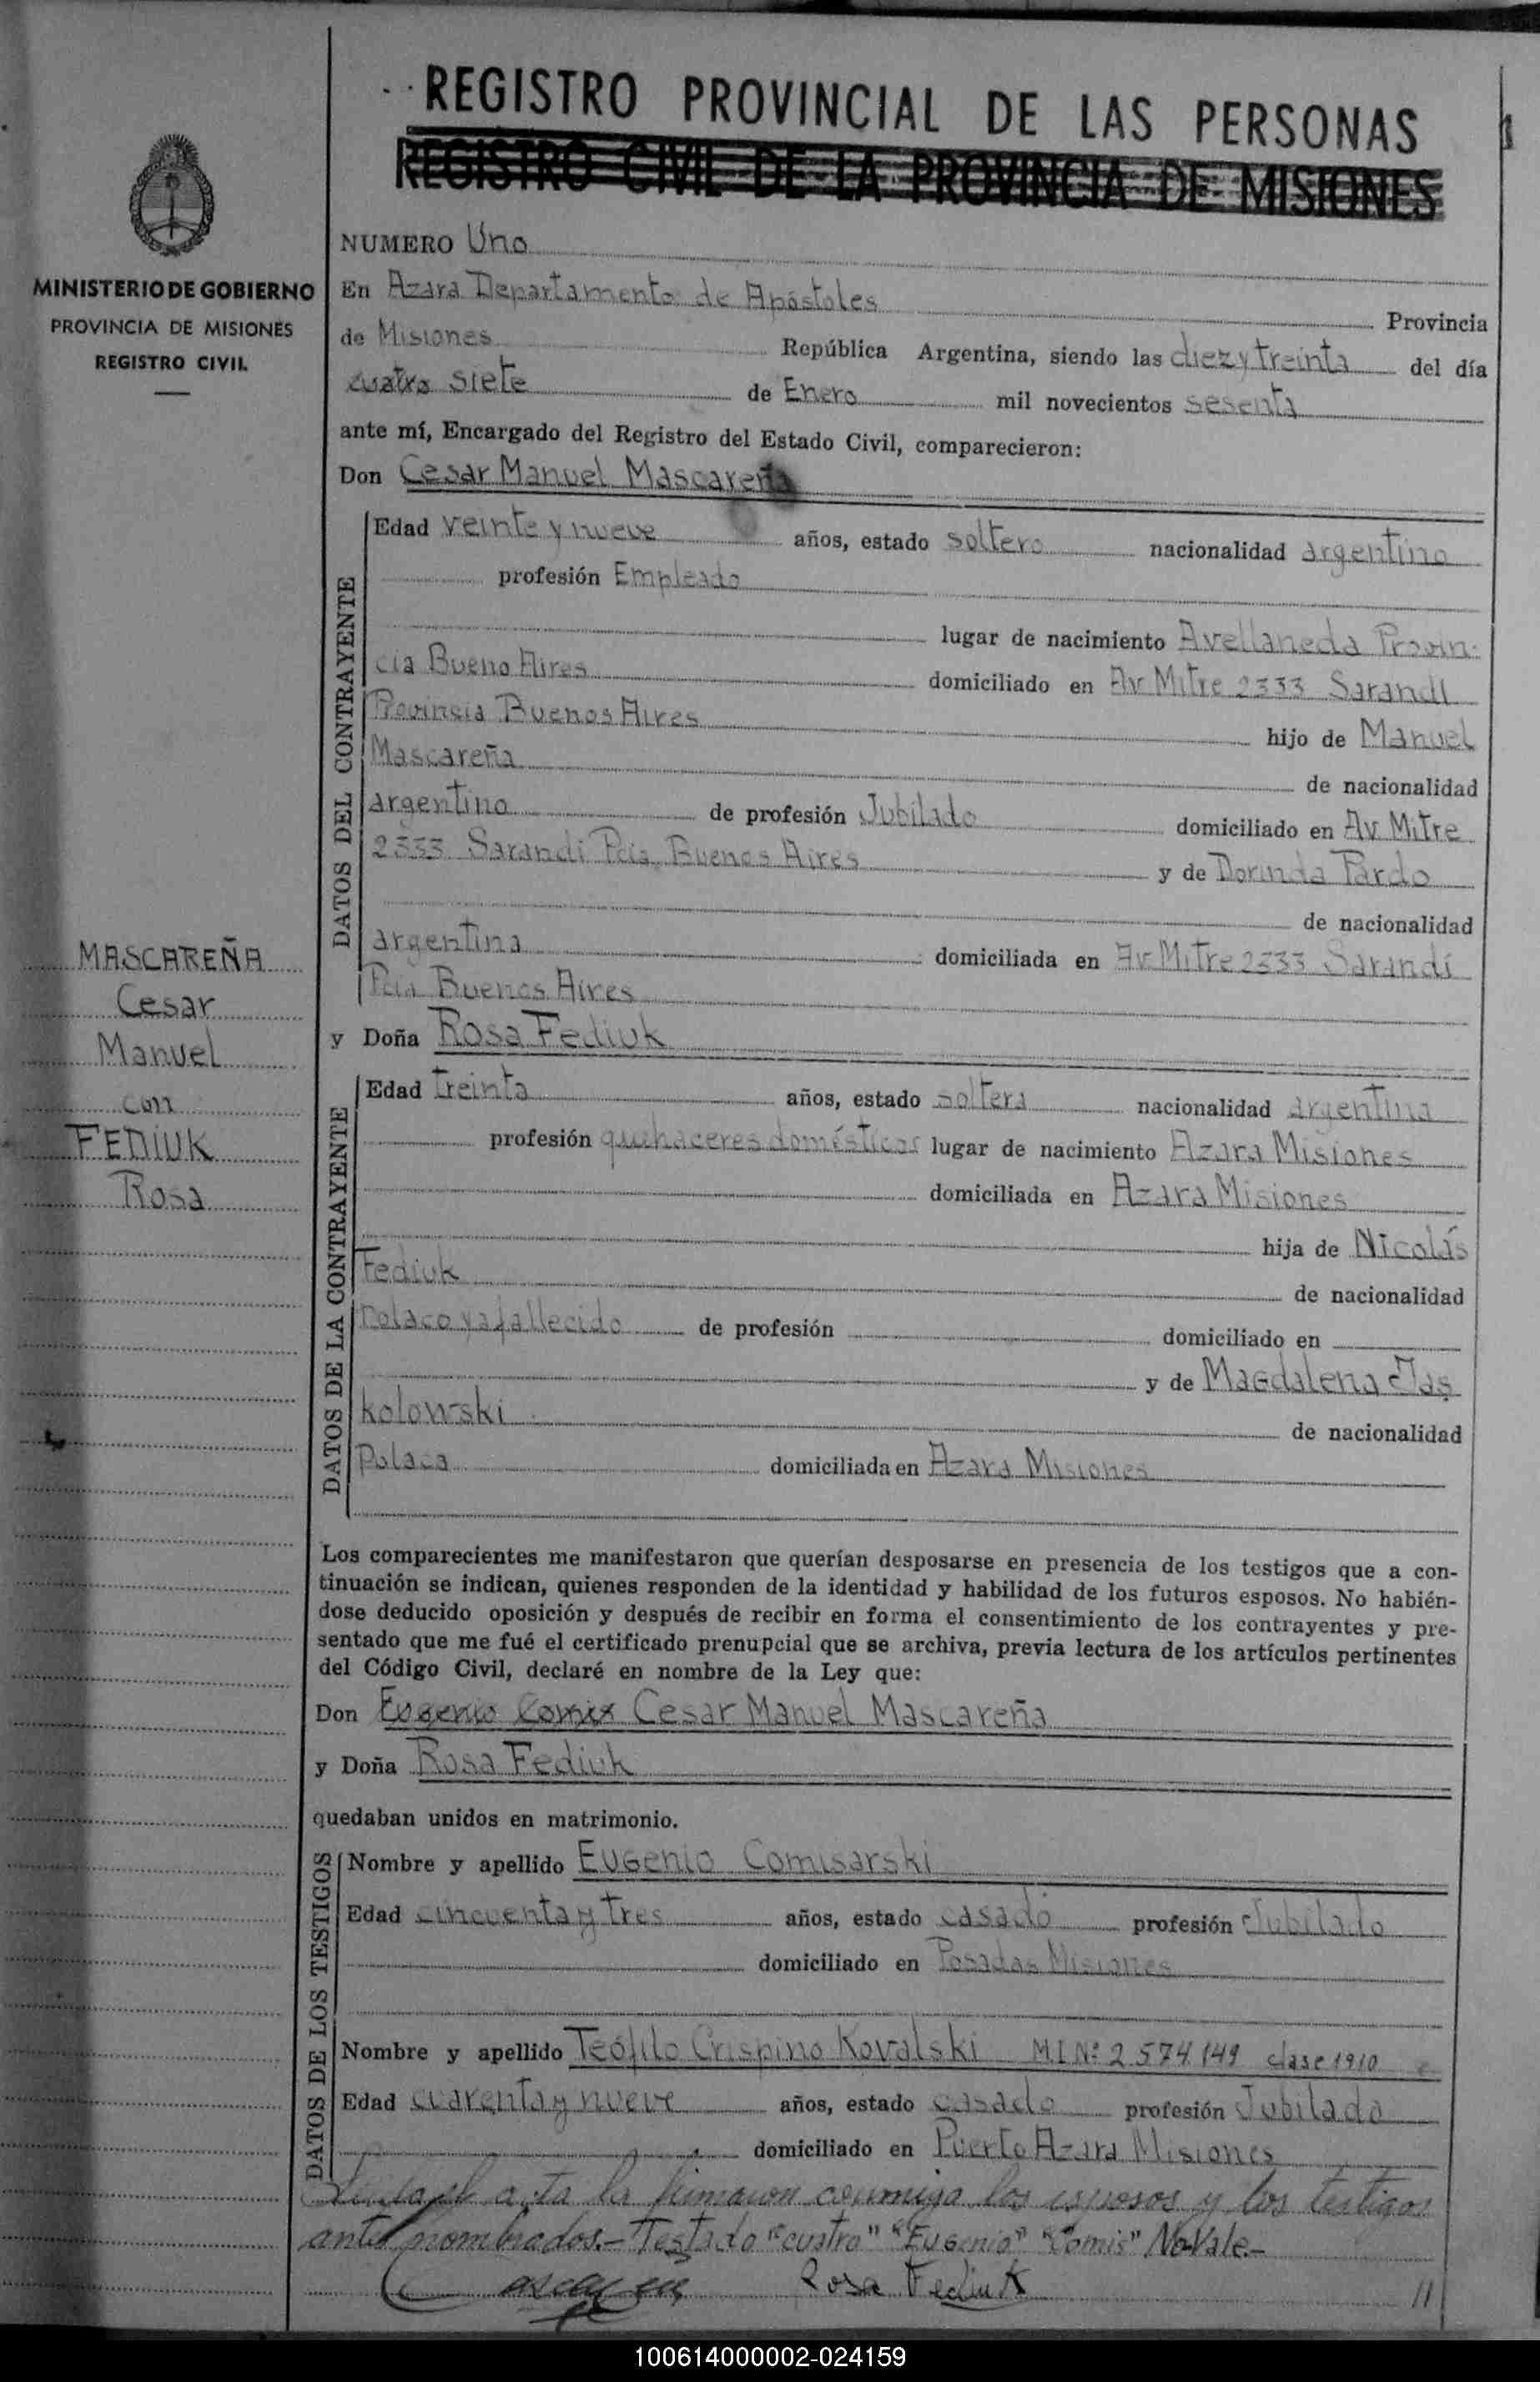 REGISTRO PROVINCIAL DE LAS PERSONAS
REGISTRO CIVIL DE LA PROVINCIA DE MISIONES
MINISTERIO DE GOBIERNO
PROVINCIA DE MISIONES
REGISTRO CIVIL
NUMERO Uno
En Azara Departamento de Apóstoles Provincia
de Misiones República Argentina, siendo las diez y treinta del día
cuatro siete de Enero mil novecientos sesenta
ante mí, Encargado del Registro del Estado Civil, comparecieron:
Don Cesar Manuel Mascareña
DATOS DEL CONTRAYENTE
Edad veinte y nueve años, estado soltero nacionalidad argentino
profesión Empleado
lugar de nacimiento Avellaneda Provin-
cia Bueno Aires domiciliado en Av Mitre 2333 Sarandí
Provincia Buenos Aires hijo de Manuel
Mascareña de nacionalidad
argentino de profesión Jubilado domiciliado en Av Mitre
2333 Sarandi Pcia Buenos Aires y de Dorinda Pardo
de nacionalidad
argentina domiciliada en Av Mitre 2333 Sarandí
Pcia Buenos Aires
MASCAREÑA
Cesar
Manuel
con
FEDIUK
Rosa
y Doña Rosa Fediuk
DATOS DE LA CONTRAYENTE
Edad treinta años, estado soltera nacionalidad argentina
profesión quehaceres domésticos lugar de nacimiento Azara Misiones
domiciliada en Azara Misiones
hija de Nicolás
Fediuk de nacionalidad
Polaco ya fallecido de profesión domiciliado en
y de Magdalena Jas
kolowski de nacionalidad
Polaca domiciliada en Azara Misiones
Los comparecientes me manifestaron que querían desposarse en presencia de los testigos que a con-
tinuación se indican, quienes responden de la identidad y habilidad de los futuros esposos. No habién-
dose deducido oposición y después de recibir en forma el consentimiento de los contrayentes y pre-
sentado que me fué el certificado prenupcial que se archiva, previa lectura de los artículos pertinentes
del Código Civil, declaré en nombre de la Ley que:
Don Eugenio Comis Cesar Manuel Mascareña
y Doña Rosa Fediuk
quedaban unidos en matrimonio.
DATOS DE LOS TESTIGOS
Nombre y apellido Eugenio Comisarski
Edad cincuenta y tres años, estado casado profesión Jubilado
domiciliado en Posadas Misiones
Nombre y apellido Teófilo Crispino Kovalski M.I.Nº 2.574.149 clase 1910
Edad cuarenta y nueve años, estado casado profesión Jubilado
domiciliado en Puerto Azara Misiones
Leída el acta la firmaron conmigo los esposos y los testigos
antes nombrados.- Testado "cuatro" "Eugenio" "Comis" No Vale.-
Rosa Fediuk
100614000002-024159